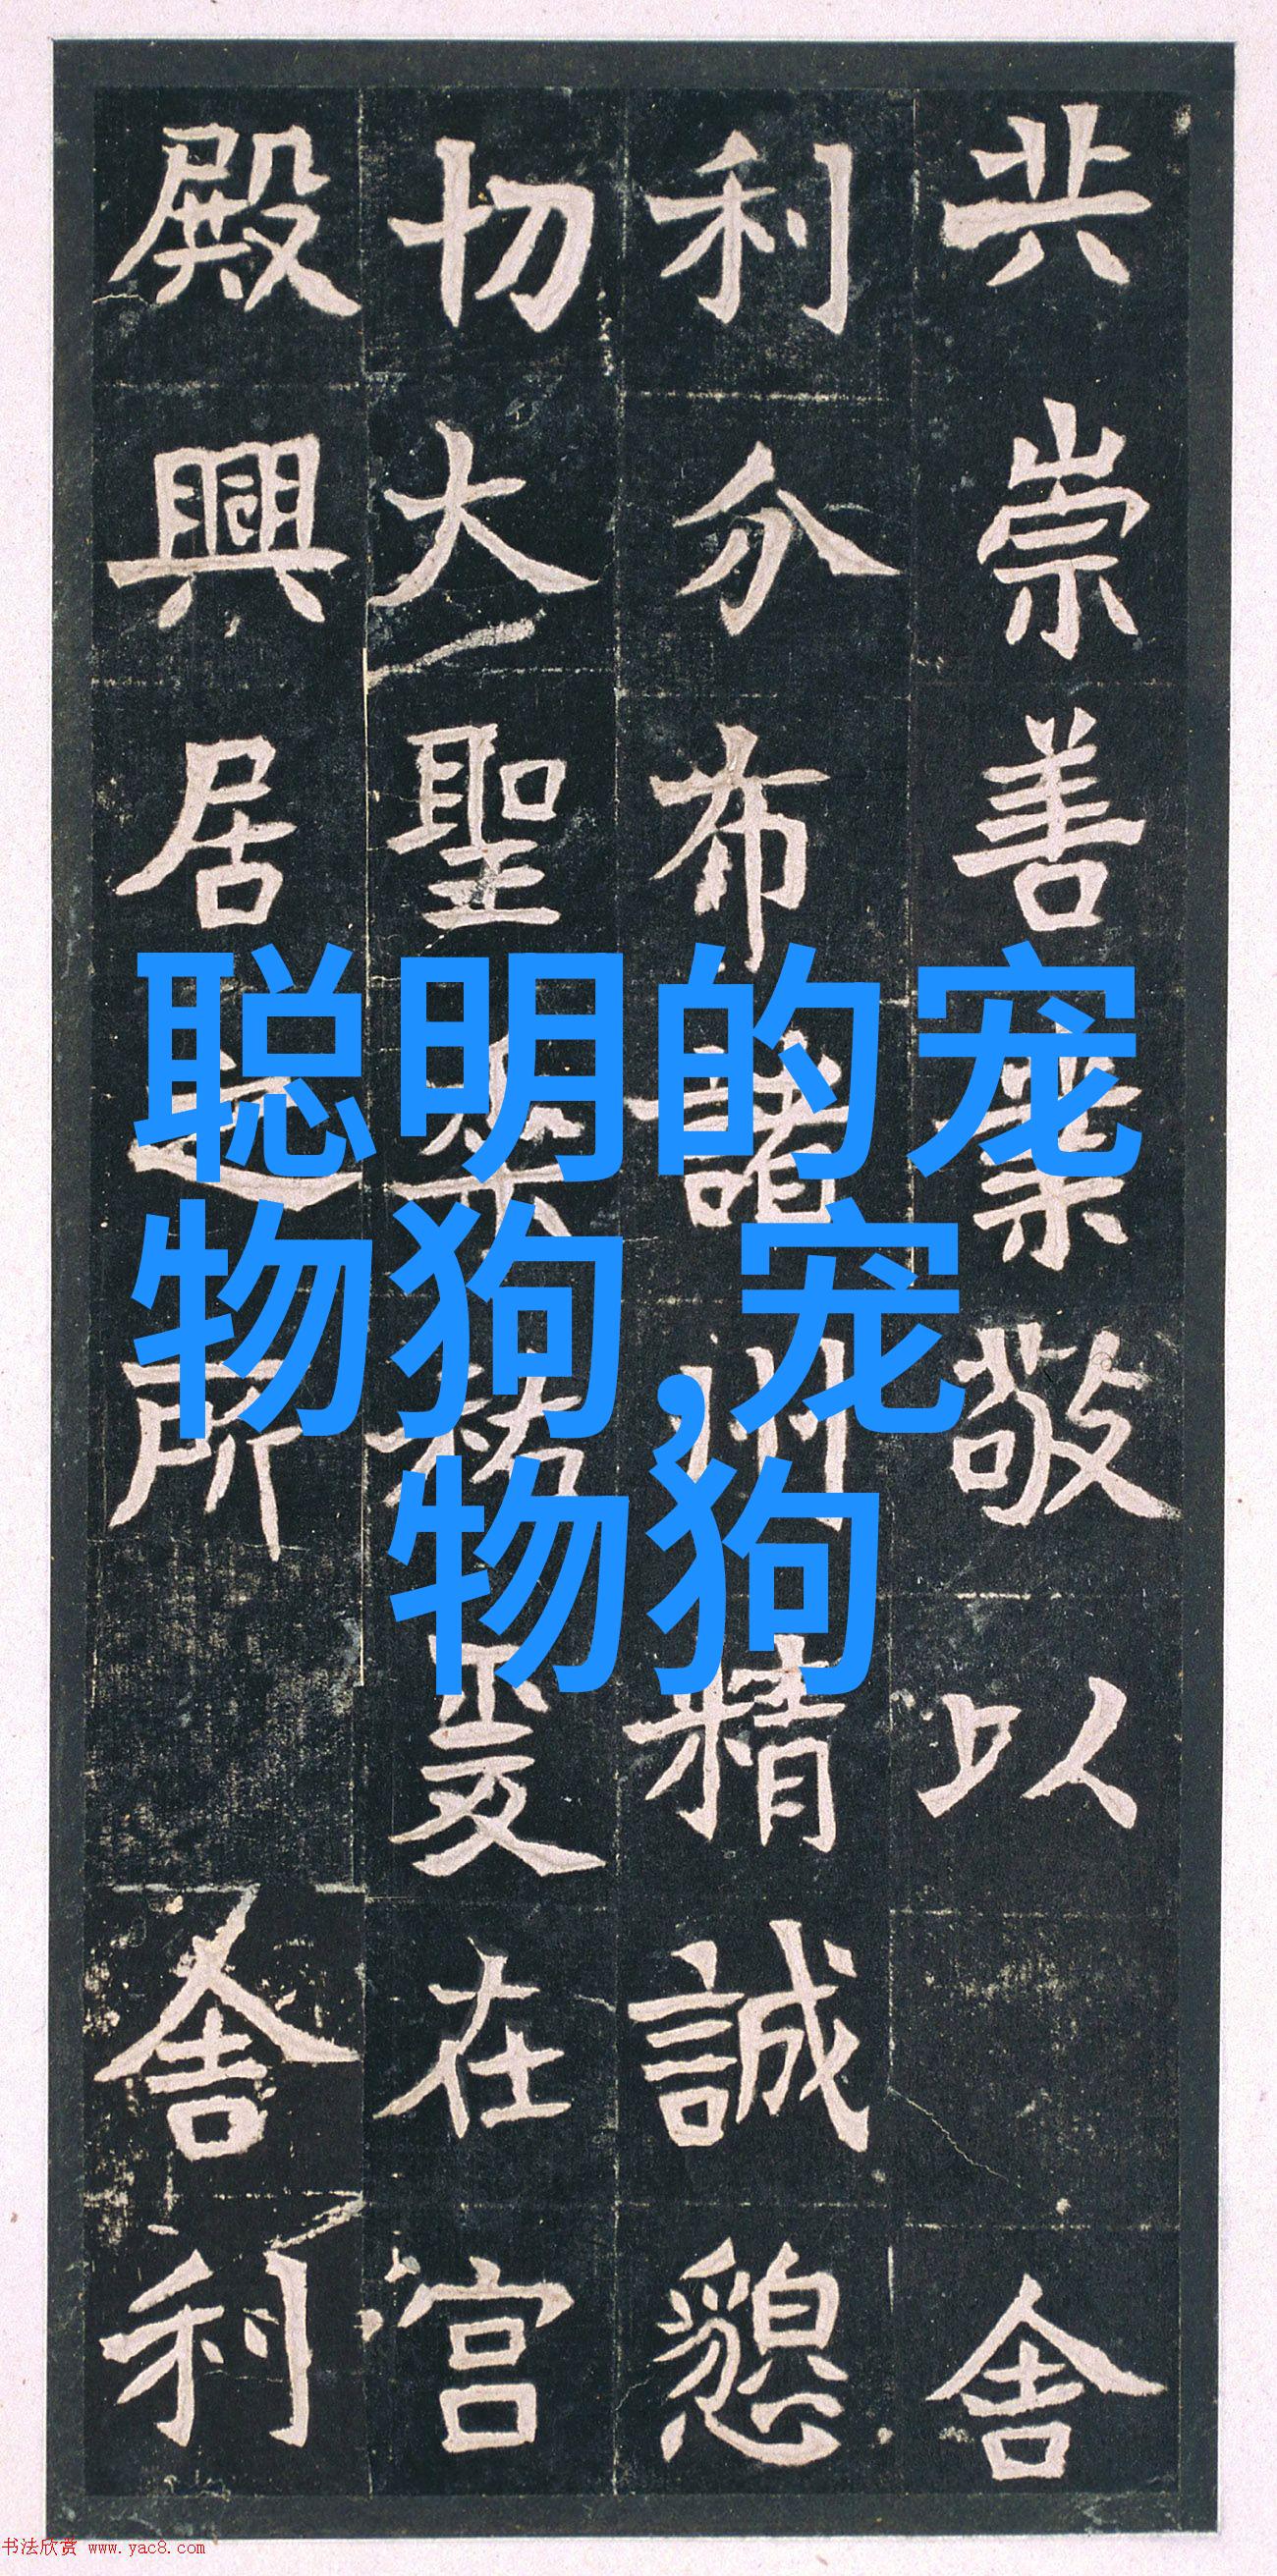 共崇善業敬以 舍
利分布諸州精誠懇
切大聖垂祐爰在宮
殿興居之所 舍利
聪明的宠
物狗,宠
物狗
书法欣赏 www.yac8.com